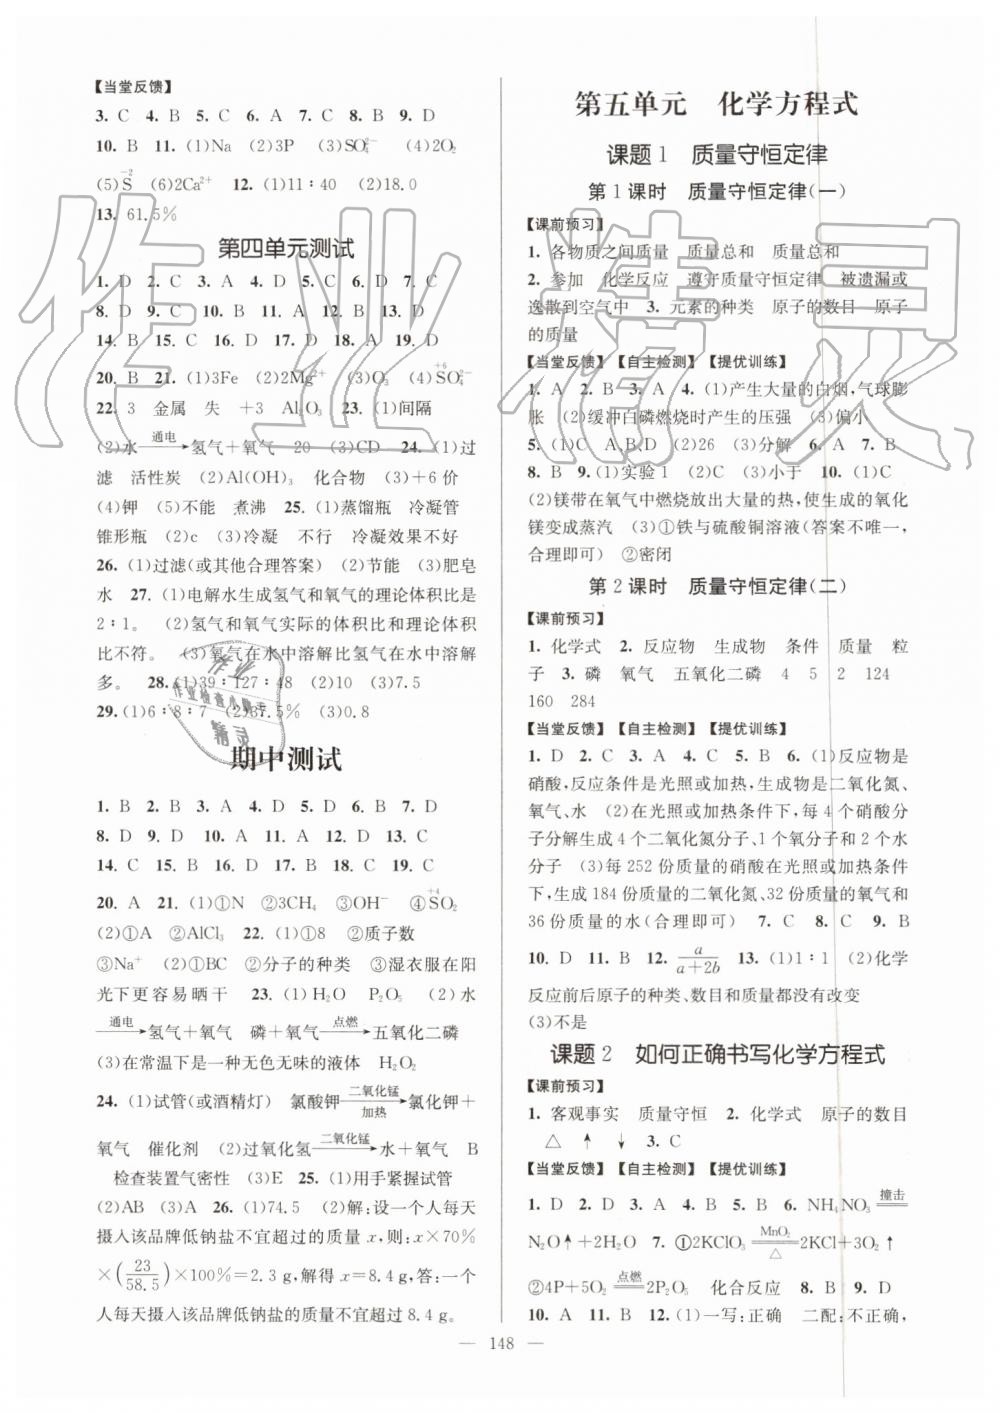 【当堂反馈】
3. C 4. B 5. C 6. A 7. C 8. B 9. D
10. B 11. (1)Na (2)3P (3)SO₄²⁻ (4)2O₂
(5)S⁻² (6)2Ca²⁺ 12. (1)11∶40 (2)18.0
13. 61.5%
第四单元测试
1. D 2. C 3. A 4. D 5. C 6. D 7. C
8. D 9. C 10. B 11. A 12. A 13. D
14. B 15. C 16. D 17. D 18. A 19. D
20. B 21. (1)3Fe (2)2Mg²⁺ (3)O₃ (4)S⁺⁶O₄²⁻
22. 3 金属 失 +3 Al₂O₃ 23. (1)间隔
(2)水 —通电→ 氢气+氧气 20 (3)CD 24. (1)过
滤 活性炭 (2)Al(OH)₃ 化合物 (3)+6价
(4)钾 (5)不能 煮沸 25. (1)蒸馏瓶 冷凝管
锥形瓶 (2)c (3)冷凝 不行 冷凝效果不好
26. (1)过滤(或其他合理答案) (2)节能 (3)肥皂
水 27. (1)电解水生成氢气和氧气的理论体积比是
2∶1。 (2)氢气和氧气实际的体积比和理论体积
比不符。 (3)氧气在水中溶解比氢气在水中溶解
多。 28. (1)39∶127∶48 (2)10 (3)7.5
29. (1)6∶8∶7 (2)37.5% (3)0.8
期中测试
1. B 2. B 3. A 4. D 5. D 6. B 7. D
8. D 9. D 10. A 11. A 12. D 13. C
14. C 15. D 16. B 17. D 18. C 19. C
20. A 21. (1)①N ②3CH₄ ③OH⁻ ④S⁺⁴O₂
(2)①A ②AlCl₃ 22. (1)①8 ②质子数
③Na⁺ (2)①BC ②分子的种类 ③湿衣服在阳
光下更容易晒干 23. (1)H₂O P₂O₅ (2)水
—通电→ 氢气+氧气 磷+氧气 —点燃→ 五氧化二磷
(3)在常温下是一种无色无味的液体 H₂O₂
24. (1)试管(或酒精灯) 氯酸钾 —二氧化锰/加热→ 氯化钾+
氧气 催化剂 (2)过氧化氢 —二氧化锰→ 水+氧气 B
检查装置气密性 (3)E 25. (1)用手紧握试管
(2)AB (3)A 26. (1)74.5 (2)解:设一个人每天
摄入该品牌低钠盐不宜超过的质量 x,则:x×70%
×(23/58.5)×100%=2.3 g,解得 x=8.4 g,答:一个
人每天摄入该品牌低钠盐的质量不宜超过 8.4 g。
第五单元 化学方程式
课题1 质量守恒定律
第1课时 质量守恒定律(一)
【课前预习】
1. 各物质之间质量 质量总和 质量总和
2. 参加 化学反应 遵守质量守恒定律 被遗漏或
逸散到空气中 3. 元素的种类 原子的数目 原子
的质量
【当堂反馈】【自主检测】【提优训练】
1. A 2. B 3. A 4. (1)产生大量的白烟,气球膨
胀 (2)缓冲白磷燃烧时产生的压强 (3)偏小
5. (1)C A、B、D (2)26 (3)分解 6. A 7. B
8. B 9. (1)实验1 (2)4 (3)小于 10. (1)C
(2)镁带在氧气中燃烧放出大量的热,使生成的氧化
镁变成蒸汽 (3)①铁与硫酸铜溶液(答案不唯一,
合理即可) ②密闭
第2课时 质量守恒定律(二)
【课前预习】
1. 化学式 2. 反应物 生成物 条件 质量 粒
子 3. 磷 氧气 五氧化二磷 4 5 2 124
160 284
【当堂反馈】【自主检测】【提优训练】
1. D 2. C 3. A 4. C 5. B 6. (1)反应物是
硝酸,反应条件是光照或加热,生成物是二氧化氮、
氧气、水 (2)在光照或加热条件下,每4个硝酸分
子分解生成4个二氧化氮分子、1个氧分子和2个水
分子 (3)每252份质量的硝酸在光照或加热条件
下,生成184份质量的二氧化氮、32份质量的氧气和
36份质量的水(合理即可) 7. C 8. C 9. B
10. D 11. B 12. a/(a+2b) 13. (1)1∶1 (2)化学
反应前后原子的种类、数目和质量都没有改变
(3)不是
课题2 如何正确书写化学方程式
【课前预习】
1. 客观事实 质量守恒 2. 化学式 原子的数目
△ ↑ ↓ 3. C
【当堂反馈】【自主检测】【提优训练】
1. D 2. D 3. A 4. B 5. B 6. NH₄NO₃ =撞击=
N₂O↑+2H₂O 7. ①2KClO₃ =MnO₂/△= 2KCl+3O₂↑
②4P+5O₂ =点燃= 2P₂O₅ 化合反应 8. B 9. D
10. A 11. B 12. (1)一写:正确 二配:不正确,
— 148 —
作业精灵
作业
作业检查小助手
精灵